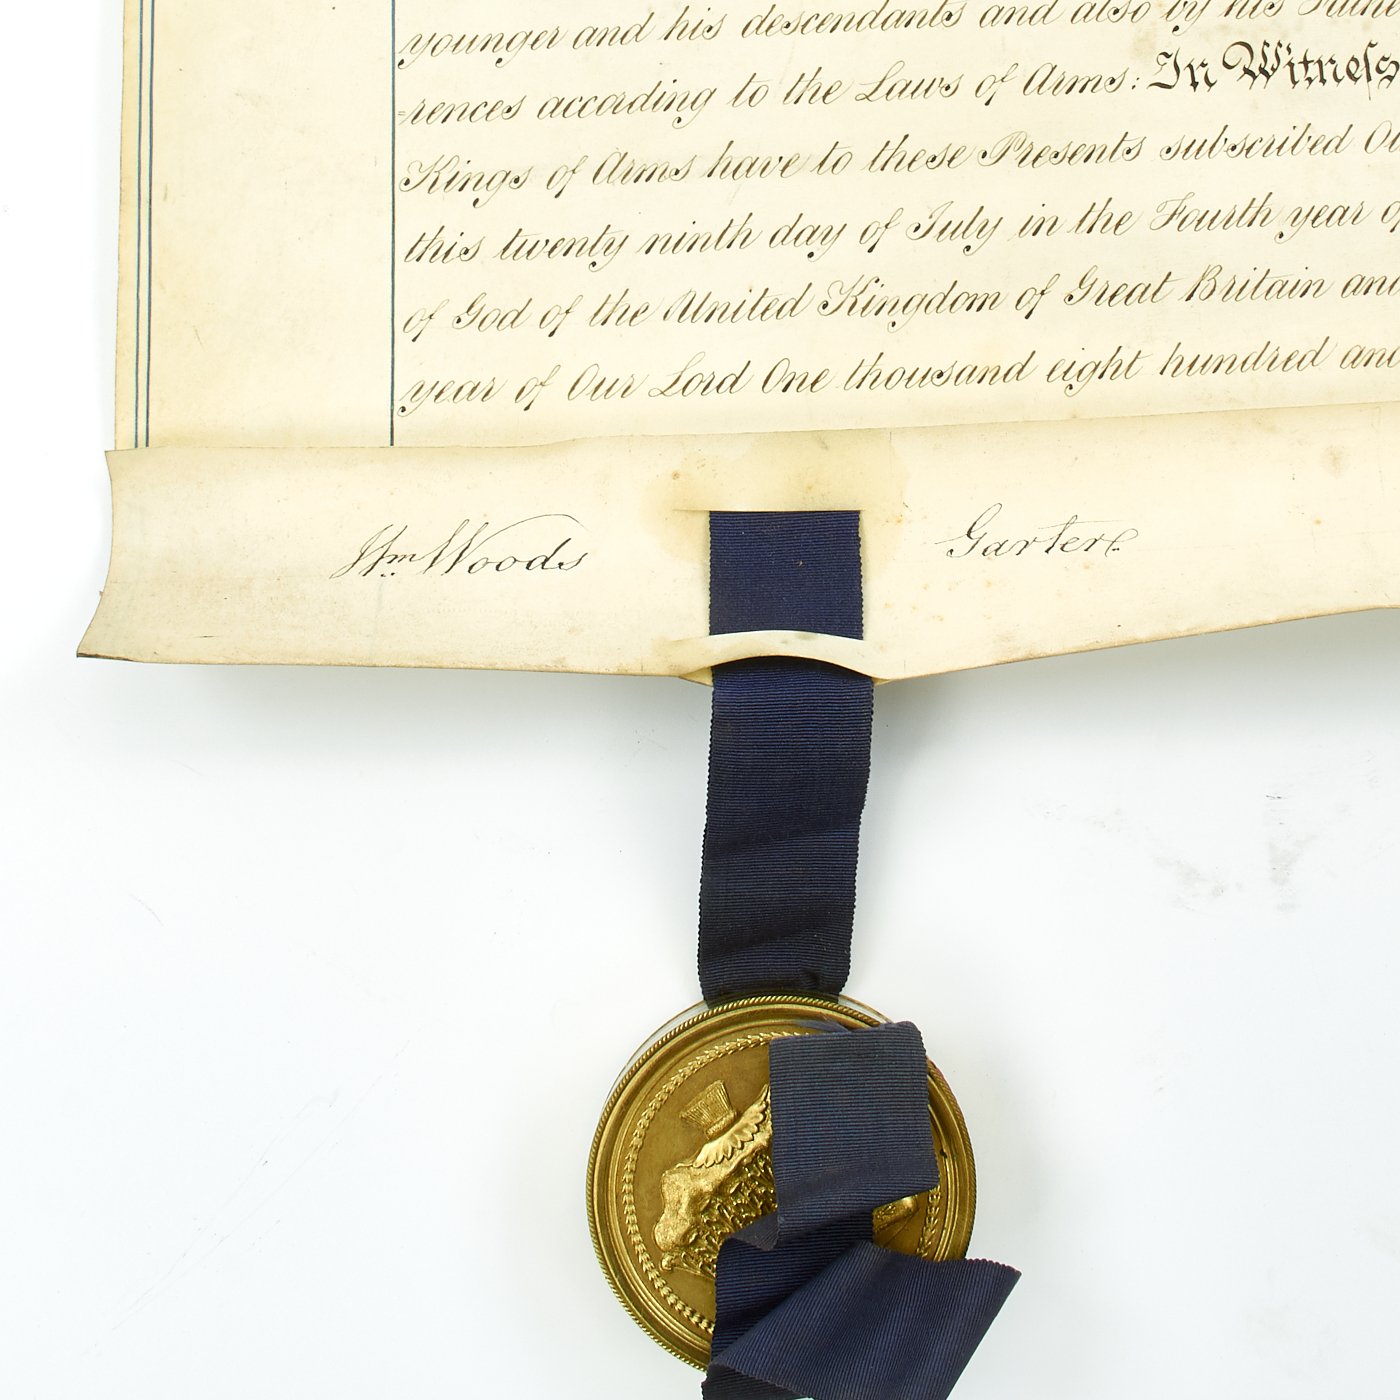 younger and his descendants and also by his Fathe
=rences according to the Laws of Arms: In Witness
Kings of Arms have to these Presents subscribed Ou
this twenty ninth day of July in the Fourth year of
of God of the United Kingdom of Great Britain and
year of Our Lord One thousand eight hundred and
Wm. Woods Garter.